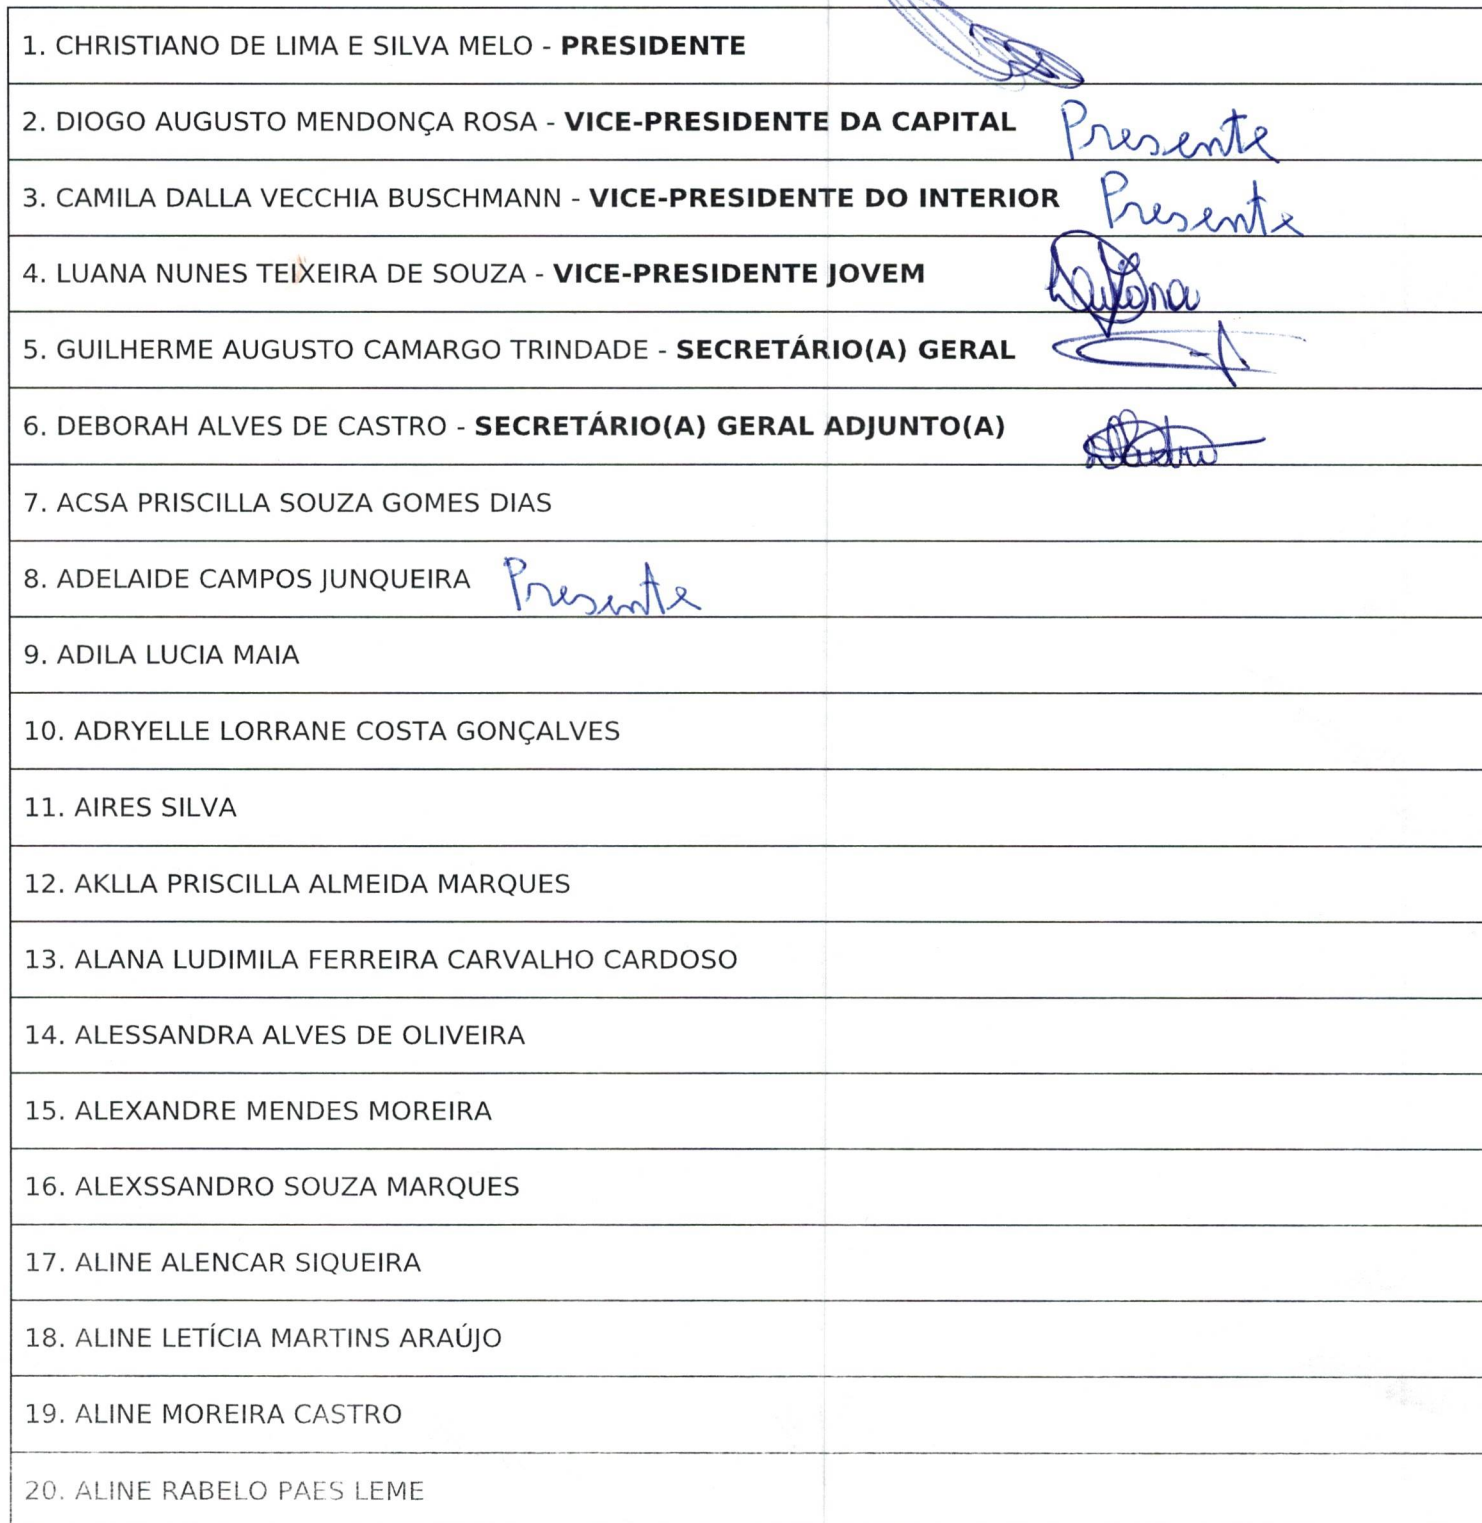 1. CHRISTIANO DE LIMA E SILVA MELO - PRESIDENTE
2. DIOGO AUGUSTO MENDONÇA ROSA - VICE-PRESIDENTE DA CAPITAL Presente
3. CAMILA DALLA VECCHIA BUSCHMANN - VICE-PRESIDENTE DO INTERIOR Presente
4. LUANA NUNES TEIXEIRA DE SOUZA - VICE-PRESIDENTE JOVEM
5. GUILHERME AUGUSTO CAMARGO TRINDADE - SECRETÁRIO(A) GERAL
6. DEBORAH ALVES DE CASTRO - SECRETÁRIO(A) GERAL ADJUNTO(A)
7. ACSA PRISCILLA SOUZA GOMES DIAS
8. ADELAIDE CAMPOS JUNQUEIRA Presente
9. ADILA LUCIA MAIA
10. ADRYELLE LORRANE COSTA GONÇALVES
11. AIRES SILVA
12. AKLLA PRISCILLA ALMEIDA MARQUES
13. ALANA LUDIMILA FERREIRA CARVALHO CARDOSO
14. ALESSANDRA ALVES DE OLIVEIRA
15. ALEXANDRE MENDES MOREIRA
16. ALEXSSANDRO SOUZA MARQUES
17. ALINE ALENCAR SIQUEIRA
18. ALINE LETÍCIA MARTINS ARAÚJO
19. ALINE MOREIRA CASTRO
20. ALINE RABELO PAES LEME